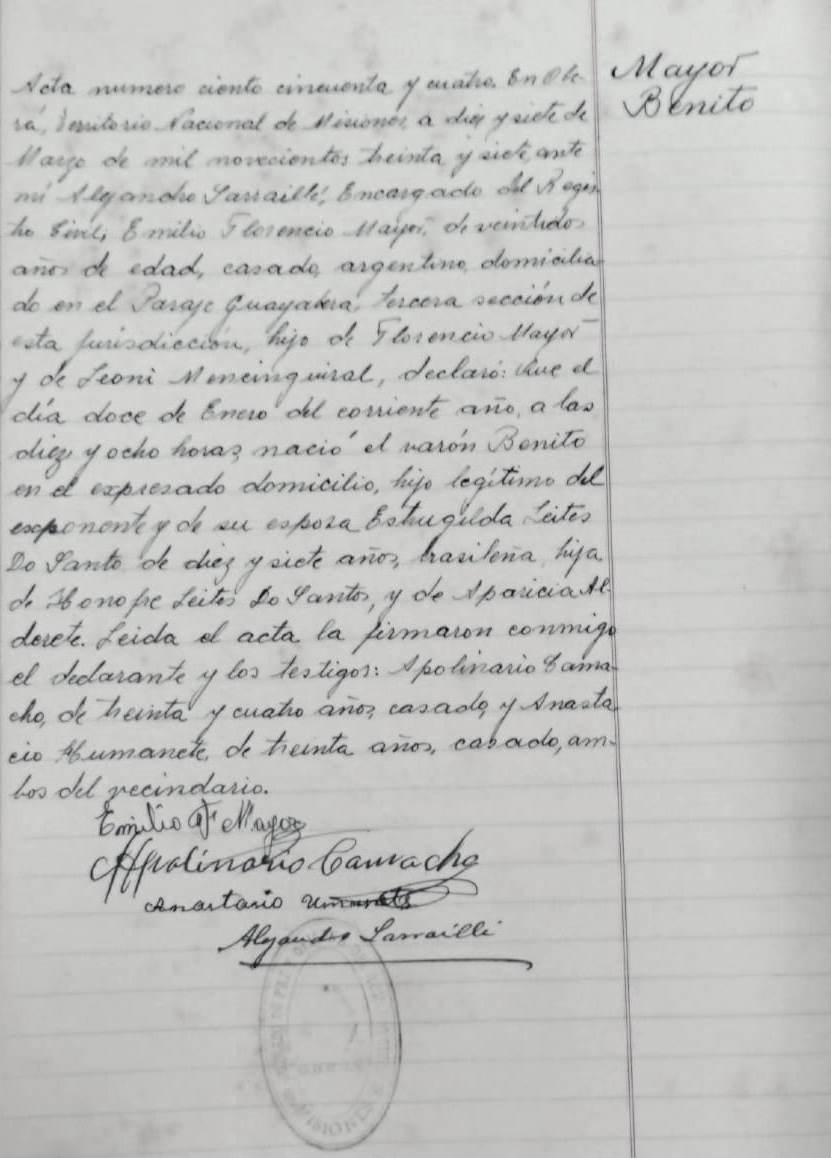 Acta numero ciento cincuenta y cuatro. En Obe-
rá, Territorio Nacional de Misiones, a diez y siete de
Marzo de mil novecientos treinta y siete, ante
mi Alejandro Larraillé, Encargado del Regis-
tro Civil, Emilio Florencio Mayor, de veintidos
años de edad, casado, argentino, domicilia-
do en el Paraje Guayabera, tercera sección de
esta jurisdicción, hijo de Florencio Mayor
y de Leoni Mencinguiral, declaró: Que el
día doce de Enero del corriente año, a las
diez y ocho horas, nació el varón Benito
en el expresado domicilio, hijo legítimo del
exponente y de su esposa Estrugilda Leites
Do Santo de diez y siete años, brasileña, hija
de Honofre Leites Do Santos, y de Aparicia Al-
derete. Leida el acta la firmaron conmigo
el declarante y los testigos: Apolinario Cama-
cho, de treinta y cuatro años, casado, y Anasta-
cio Humanete, de treinta años, casado, am-
bos del vecindario.
Emilio F Mayor
Apolinario Camacho
Anastacio
Alejandro Larraillé
Mayor
Benito
MISIONES